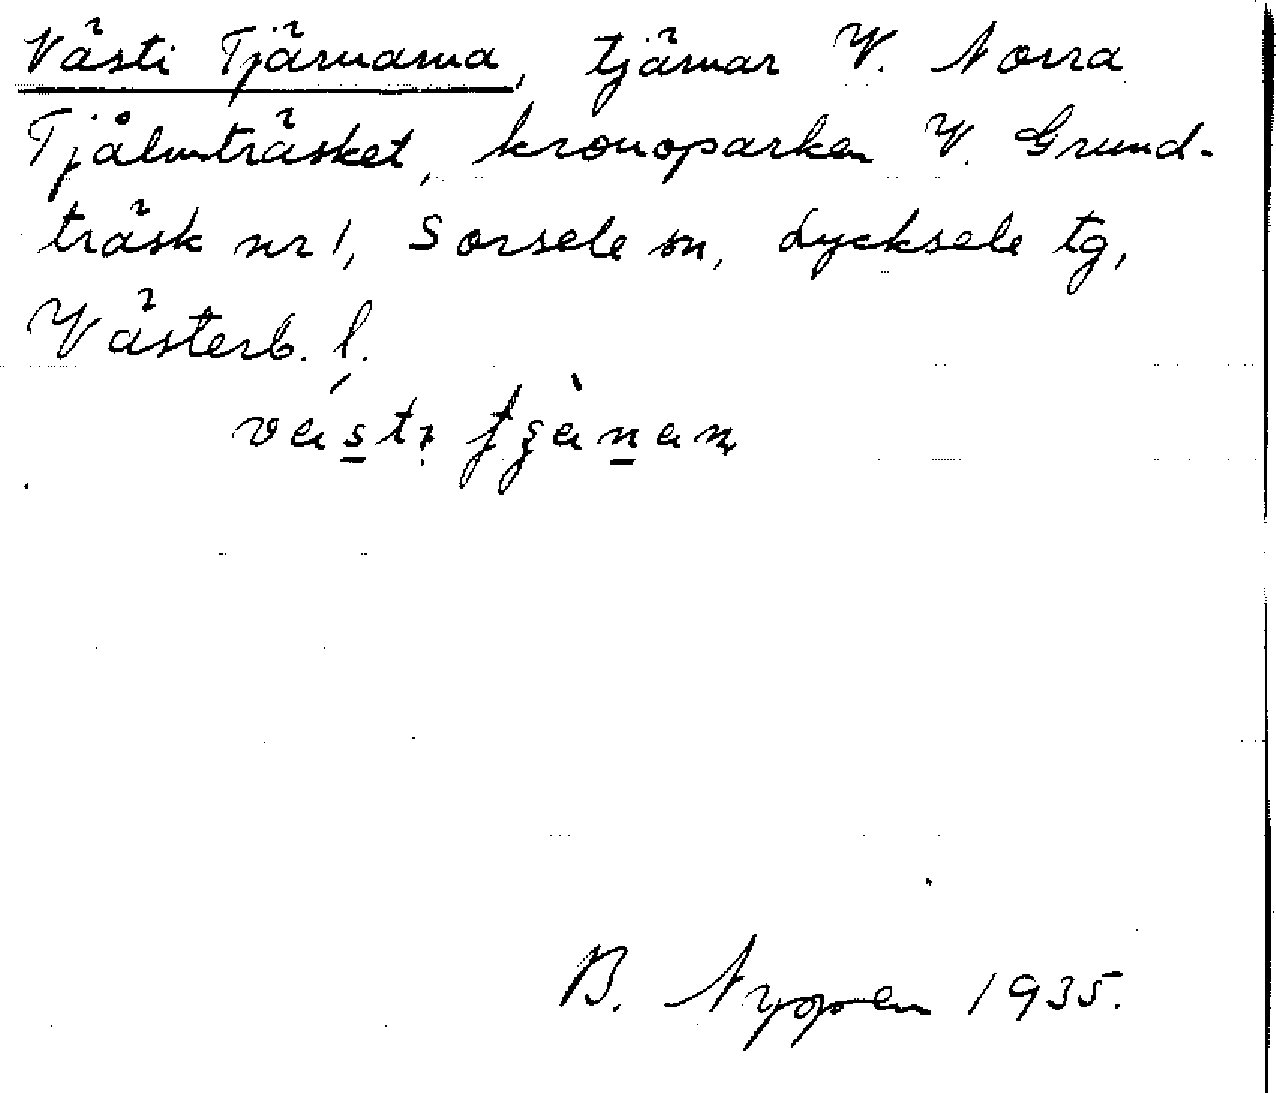 Västi Tjärnarna, tjärnar V. Norra
Tjålmträsket, kronoparken V. Grund-
träsk nr 1, Sorsele sn, Lycksele tg,
Västerb. l.
B. Nyppen 1935.